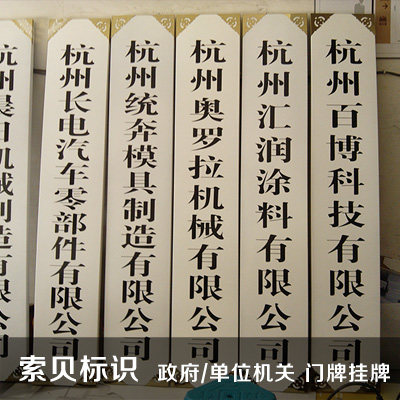 杭州晨日机械制造
杭州长电汽车零部件有限公司
杭州统奔模具制造有限公司
杭州奥罗拉机械有限公司
杭州汇润涂料有限公司
杭州百博科技有限公司
索贝标识 政府/单位机关 门牌挂牌